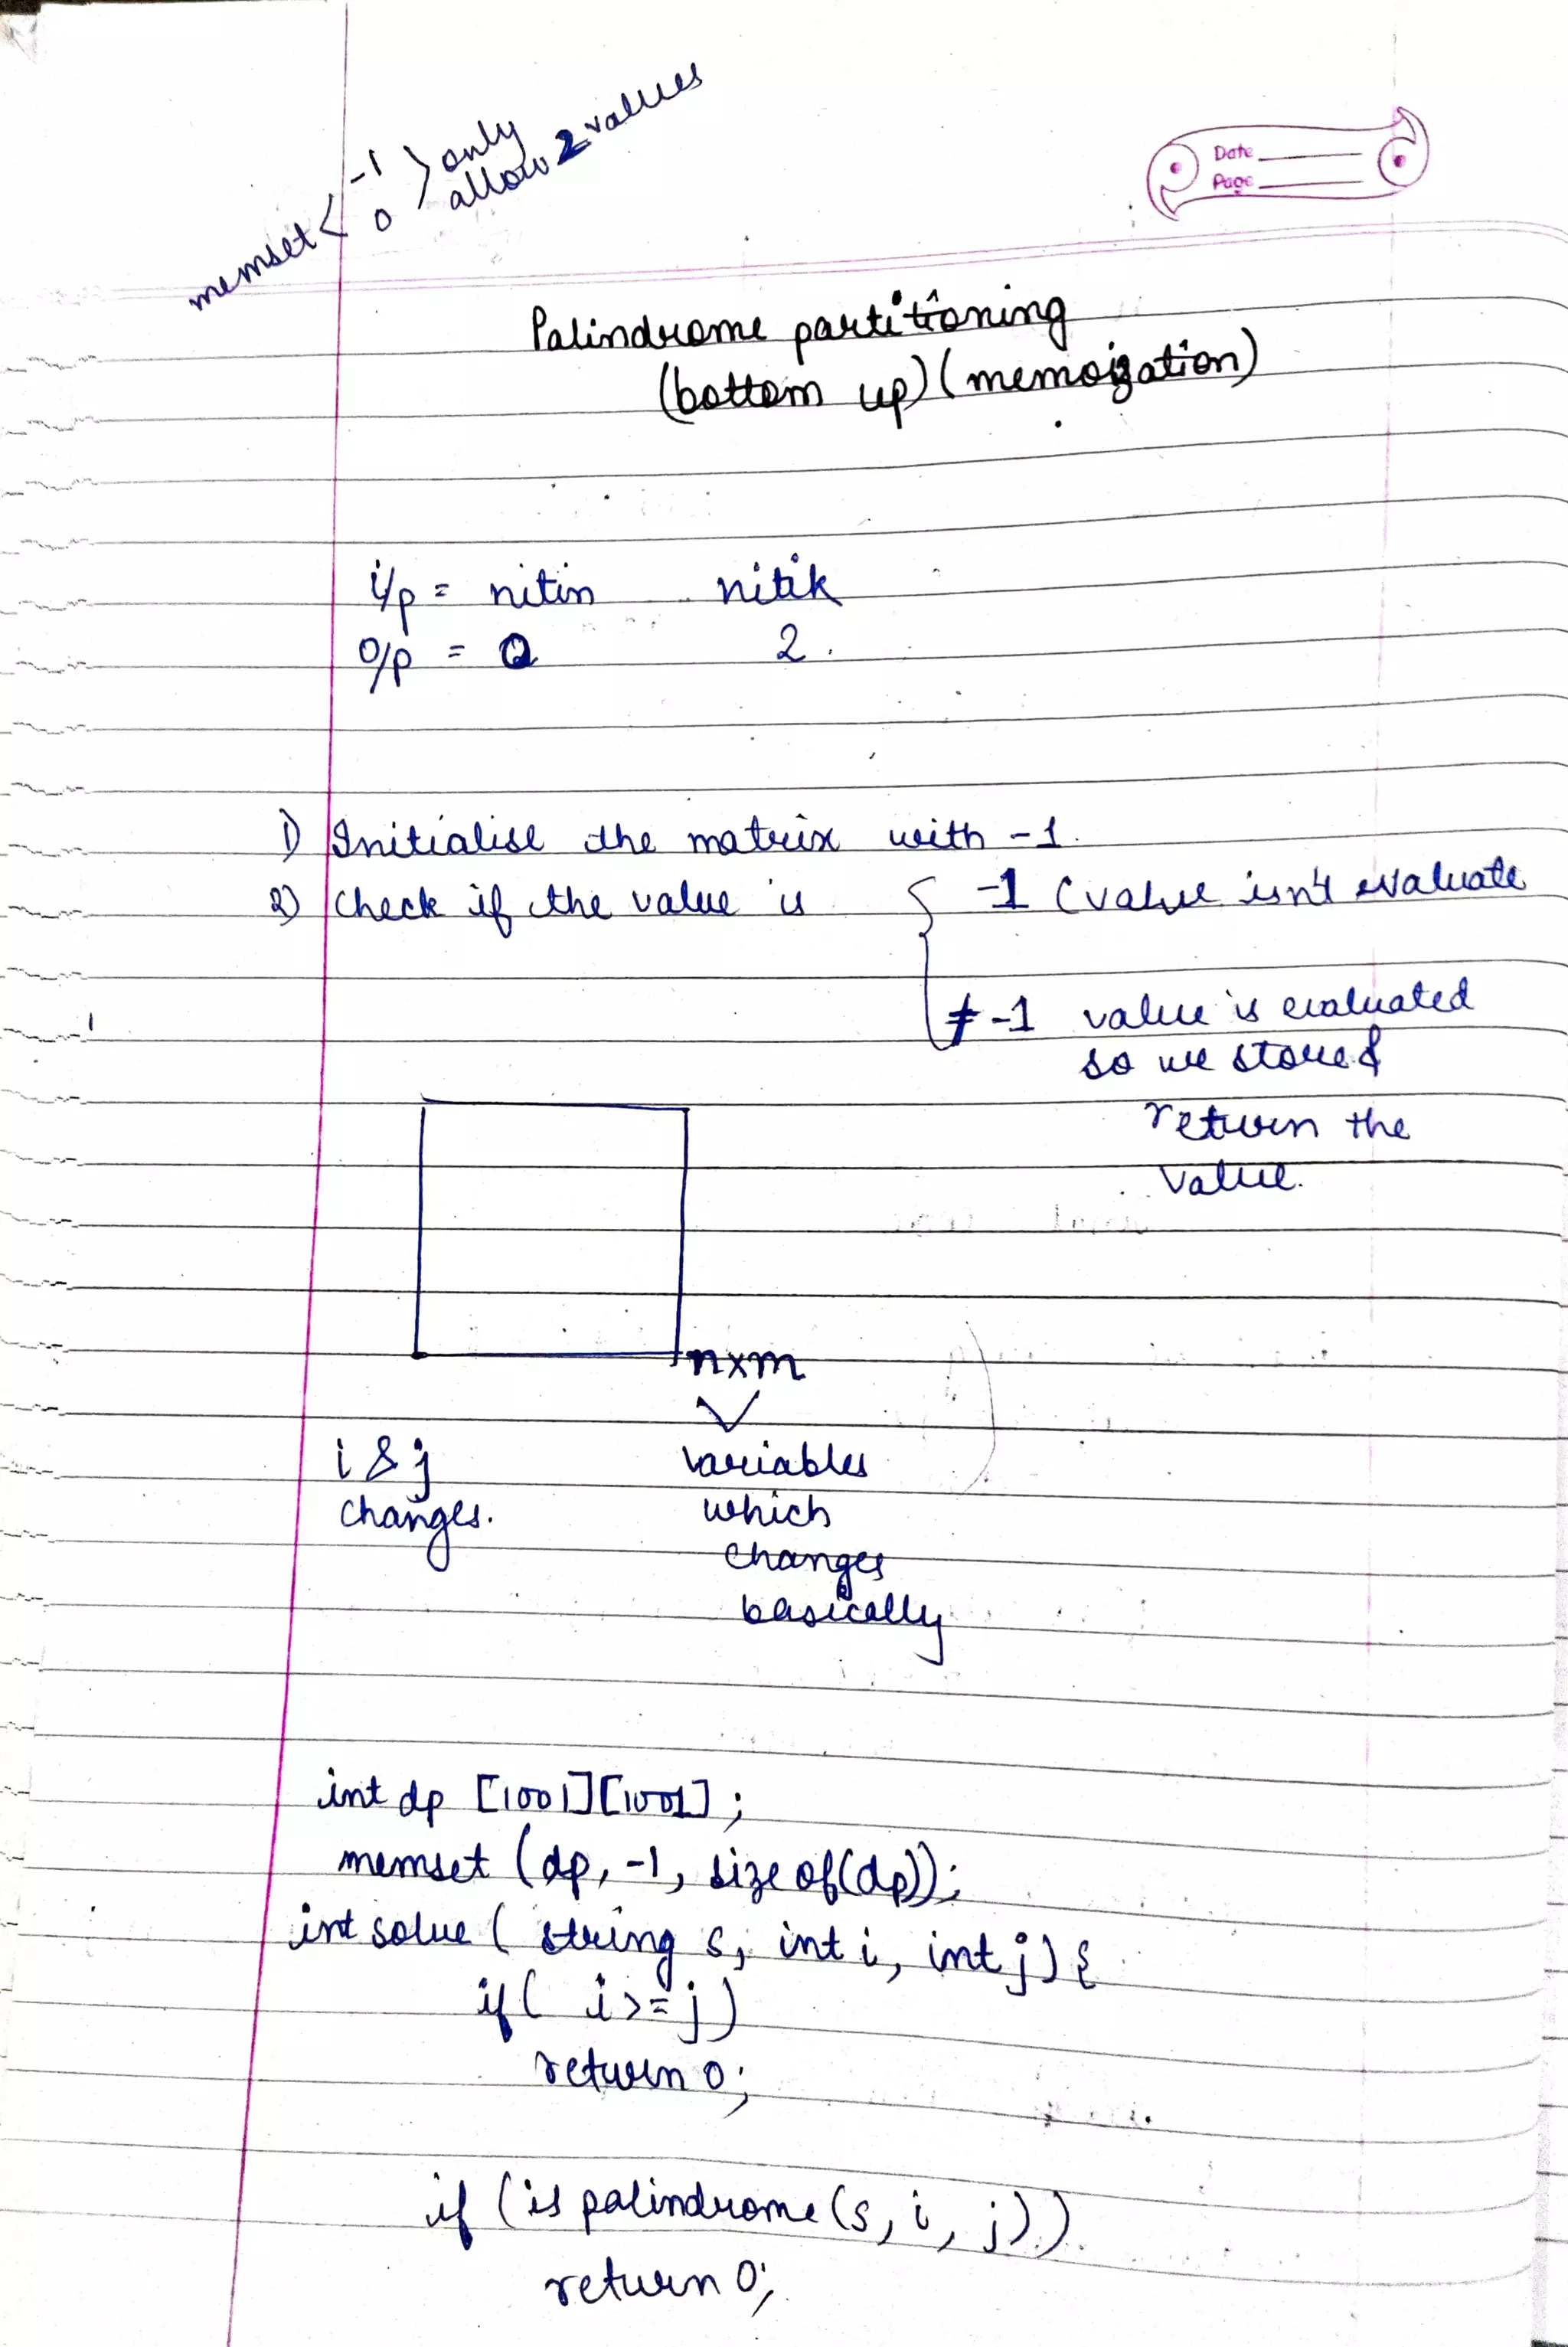 memset < -1 0 > only allow 2 values
Date
Page
Palindrome partitioning
(bottom up) (memoization)
i/p = nitin nitik
o/p = 0 2.
1) Initialise the matrix with -1.
2) Check if the value is { -1 (value isn't evaluate
≠ -1 value is evaluated
so we stored
return the
value.
n×m
i & j variables
changes. which
changes
basically
int dp [1001][1001];
memset (dp, -1, sizeof(dp));
int solve ( string s, int i, int j) {
if( i>=j)
return 0;
if (is palindrome(s, i, j))
return 0;